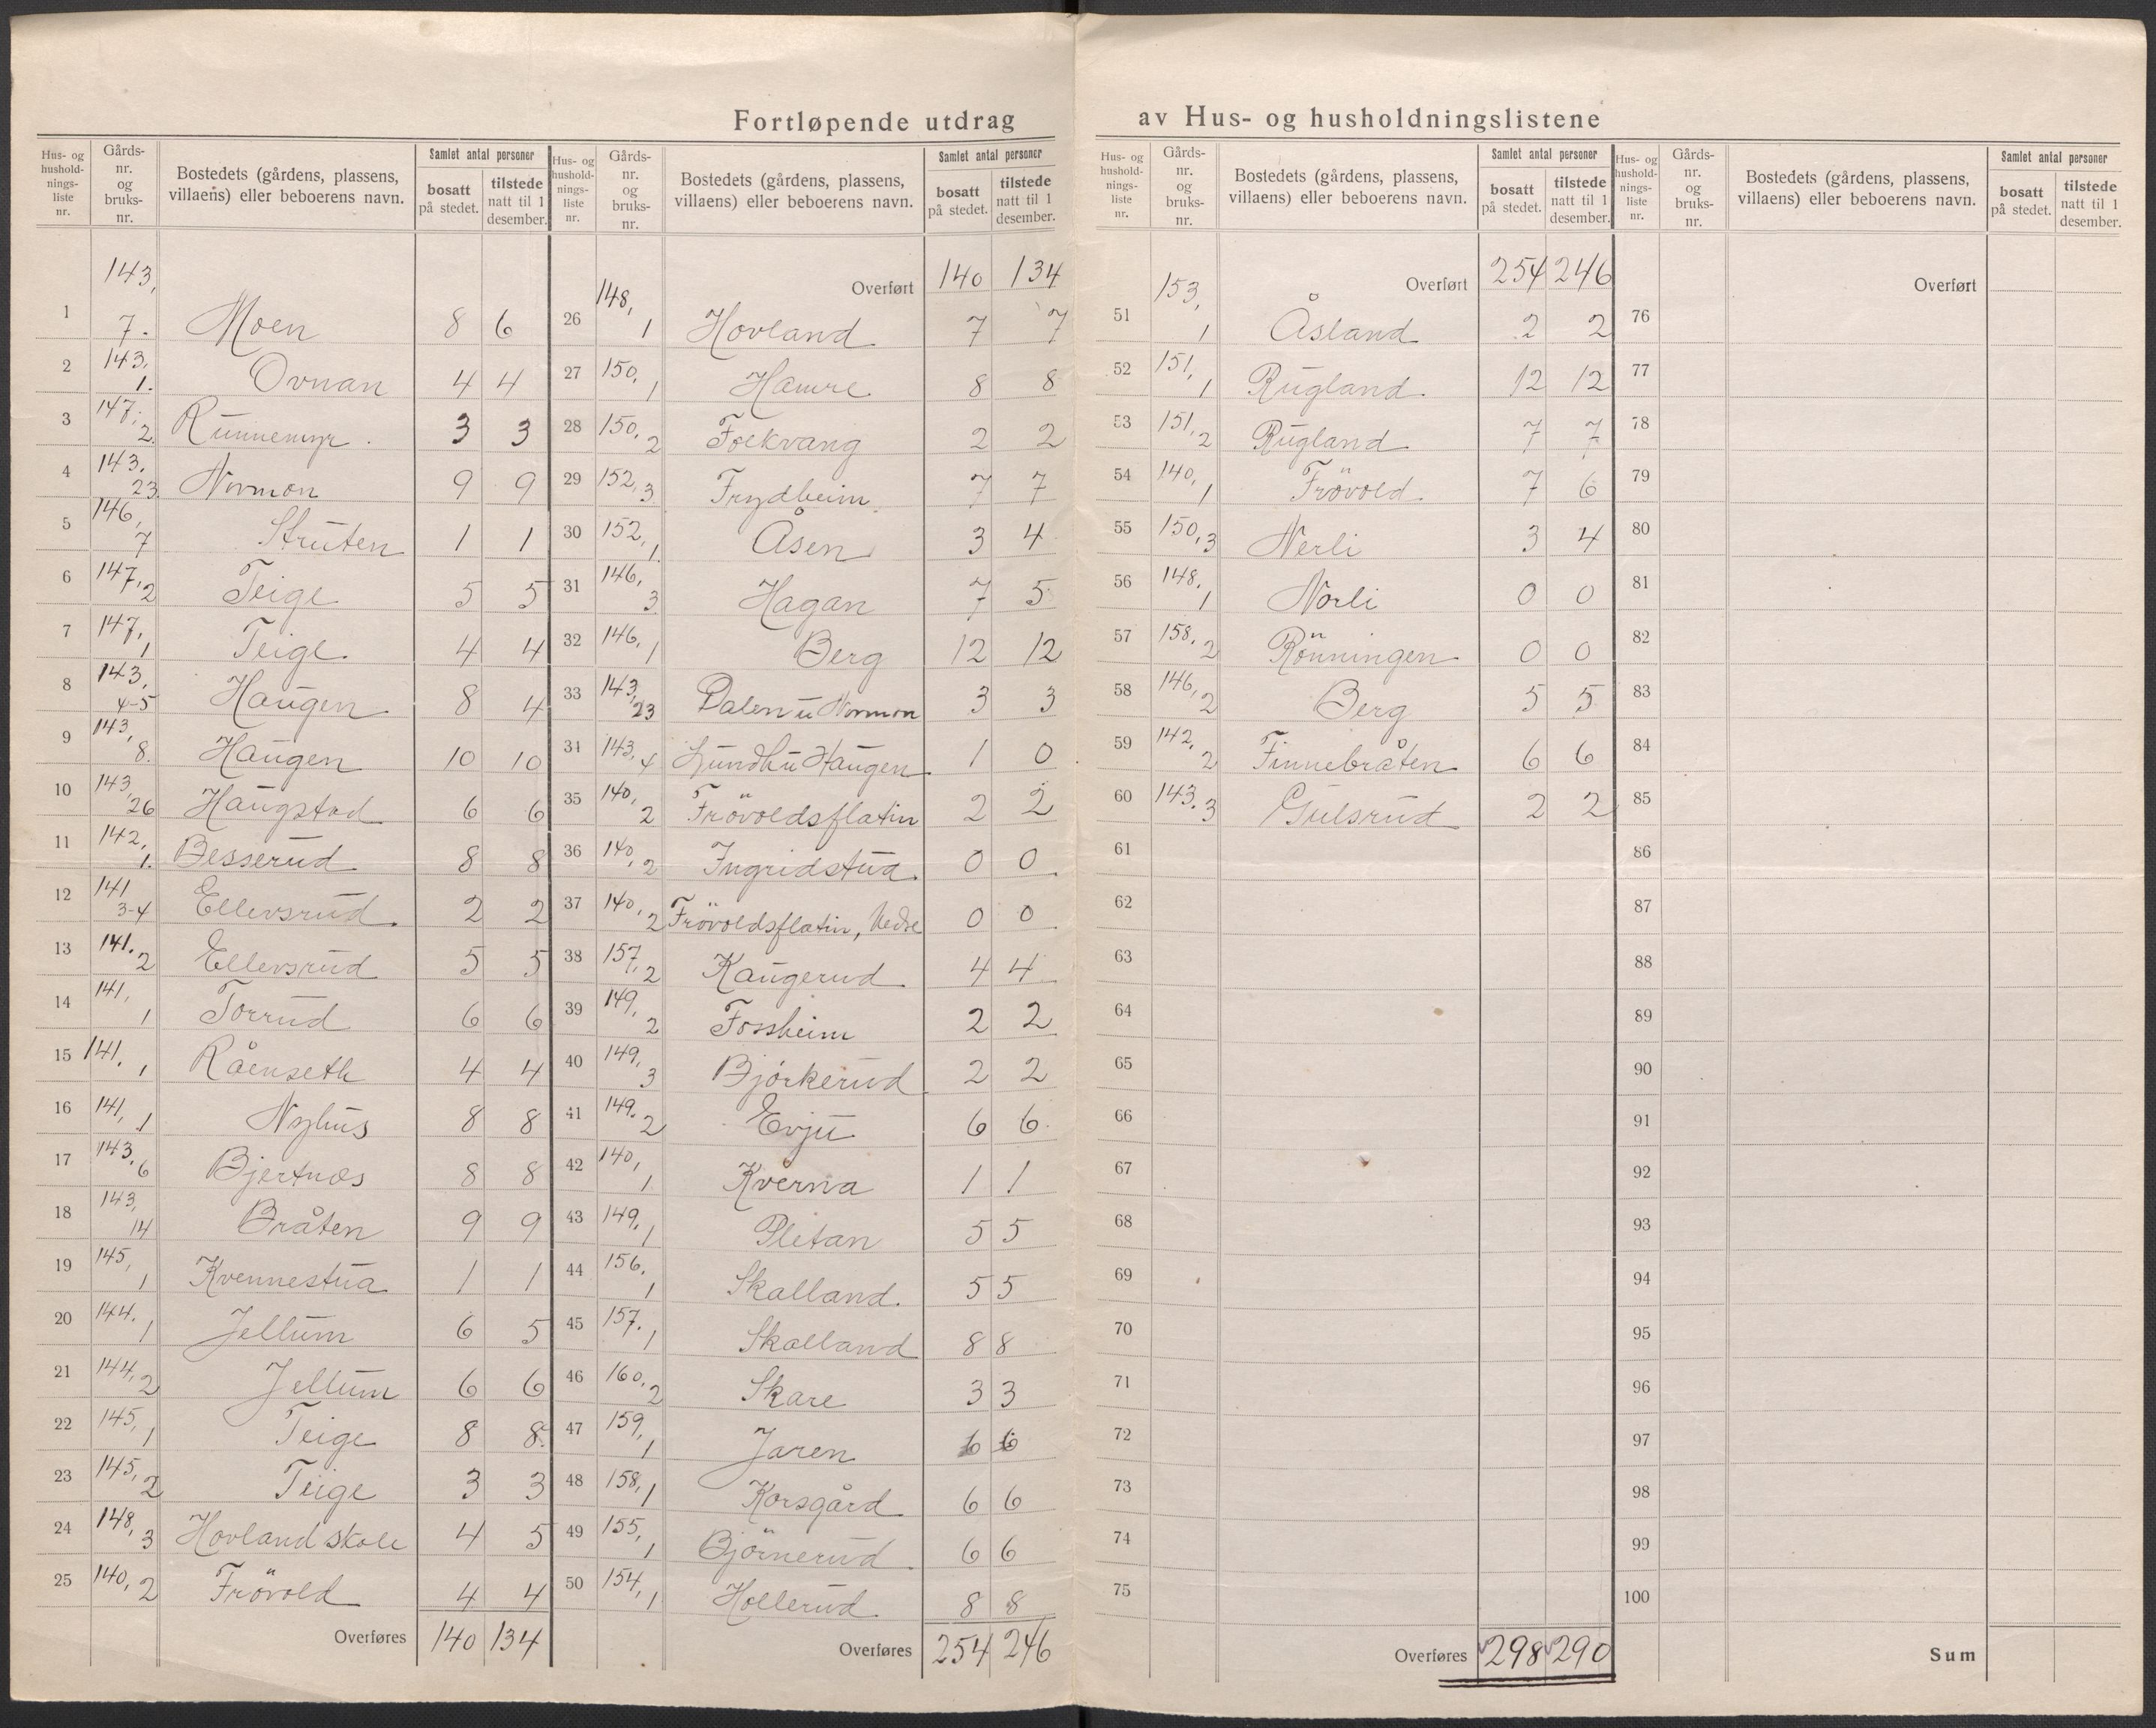 Fortløpende utdrag av Hus- og husholdningslistene
Hus- og husholdnings- liste nr. | Gårds- nr. og bruks- nr. | Bostedets (gårdens, plassens, villaens) eller beboerens navn. | Samlet antal personer | bosatt på stedet. | tilstede natt til 1 desember.
1 | 143, 7. | Moen | 8 | 6
2 | 143, 1. | Ovnan | 4 | 4
3 | 147, 2 | Runnemyr | 3 | 3
4 | 143, 23 | Normon | 9 | 9
5 | 146, 7 | Struten | 1 | 1
6 | 147, 2 | Teige | 5 | 5
7 | 147, 1 | Teige | 4 | 4
8 | 143, 4-5 | Haugen | 8 | 4
9 | 143, 8. | Haugen | 10 | 10
10 | 143, 26 | Haugstad | 6 | 6
11 | 142, 1. | Besserud | 8 | 8
12 | 141 3-4 | Ellevsrud | 2 | 2
13 | 141. 2 | Ellevsrud | 5 | 5
14 | 141, 1 | Torrud | 6 | 6
15 | 141. 1 | Råenseth | 4 | 4
16 | 141, 1 | Nyhus | 8 | 8
17 | 143. 6 | Bjertnæs | 8 | 8
18 | 143, 14 | Bråten | 9 | 9
19 | 145, 1 | Kvennestua | 1 | 1
20 | 144. 1 | Jellum | 6 | 5
21 | 144, 2 | Jellum | 6 | 6
22 | 145, 1 | Teige | 8 | 8
23 | 145, 2 | Teige | 3 | 3
24 | 148, 3 | Hovland skole | 4 | 5
25 | 140, 2 | Frövold | 4 | 4
Overføres | 140 | 134
Hus- og husholdnings- liste nr. | Gårds- nr. og bruks- nr. | Bostedets (gårdens, plassens, villaens) eller beboerens navn. | Samlet antal personer | bosatt på stedet. | tilstede natt til 1 desember.
Overført | 140 | 134
26 | 148, 1 | Hovland | 7 | 7
27 | 150, 1 | Hamre | 8 | 8
28 | 150, 2 | Folkvang | 2 | 2
29 | 152, 3 | Frydheim | 7 | 7
30 | 152, 1 | Åsen | 3 | 4
31 | 146, 3 | Hagan | 7 | 5
32 | 146, 1 | Berg | 12 | 12
33 | 143, 23 | Dalen u Normon | 3 | 3
34 | 143, 4 | Lundh u Haugen | 1 | 0
35 | 140, 2 | Frövoldsflatin | 2 | 2
36 | 140, 2 | Ingridstua | 0 | 0
37 | 140, 2 | Frövoldsflatin, Nedre | 0 | 0
38 | 157, 2 | Kaugerud | 4 | 4
39 | 149, 2 | Fossheim | 2 | 2
40 | 149, 3 | Björkerud | 2 | 2
41 | 149. 2 | Evju | 6 | 6
42 | 140, 1 | Kverna | 1 | 1
43 | 149, 1 | Pletan | 5 | 5
44 | 156, 1 | Skalland. | 5 | 5
45 | 157. 1 | Skalland | 8 | 8
46 | 160, 2 | Skare | 3 | 3
47 | 159, 1 | Jaren | 6 | 6
48 | 158, 1 | Korsgård | 6 | 6
49 | 155, 1 | Björnerud | 6 | 6
50 | 154, 1 | Hollerud | 8 | 8
Overføres | 254 | 246
Hus- og husholdnings- liste nr. | Gårds- nr. og bruks- nr. | Bostedets (gårdens, plassens, villaens) eller beboerens navn. | Samlet antal personer | bosatt på stedet. | tilstede natt til 1 desember.
Overført | 254 | 246
51 | 153, 1 | Åsland | 2 | 2
52 | 151, 1 | Rugland. | 12 | 12
53 | 151, 2 | Rugland | 7 | 7
54 | 140, 1 | Frövold. | 7 | 6
55 | 150, 3 | Nerli | 3 | 4
56 | 148. 1 | Norli | 0 | 0
57 | 158. 2 | Rönningen | 0 | 0
58 | 146, 2 | Berg | 5 | 5
59 | 142, 2 | Finnebråten | 6 | 6
60 | 143. 3 | Gulsrud | 2 | 2
61
62
63
64
65
66
67
68
69
70
71
72
73
74
75
Overføres | 298 | 290
Hus- og husholdnings- liste nr. | Gårds- nr. og bruks- nr. | Bostedets (gårdens, plassens, villaens) eller beboerens navn. | Samlet antal personer | bosatt på stedet. | tilstede natt til 1 desember.
Overført
76
77
78
79
80
81
82
83
84
85
86
87
88
89
90
91
92
93
94
95
96
97
98
99
100
Sum